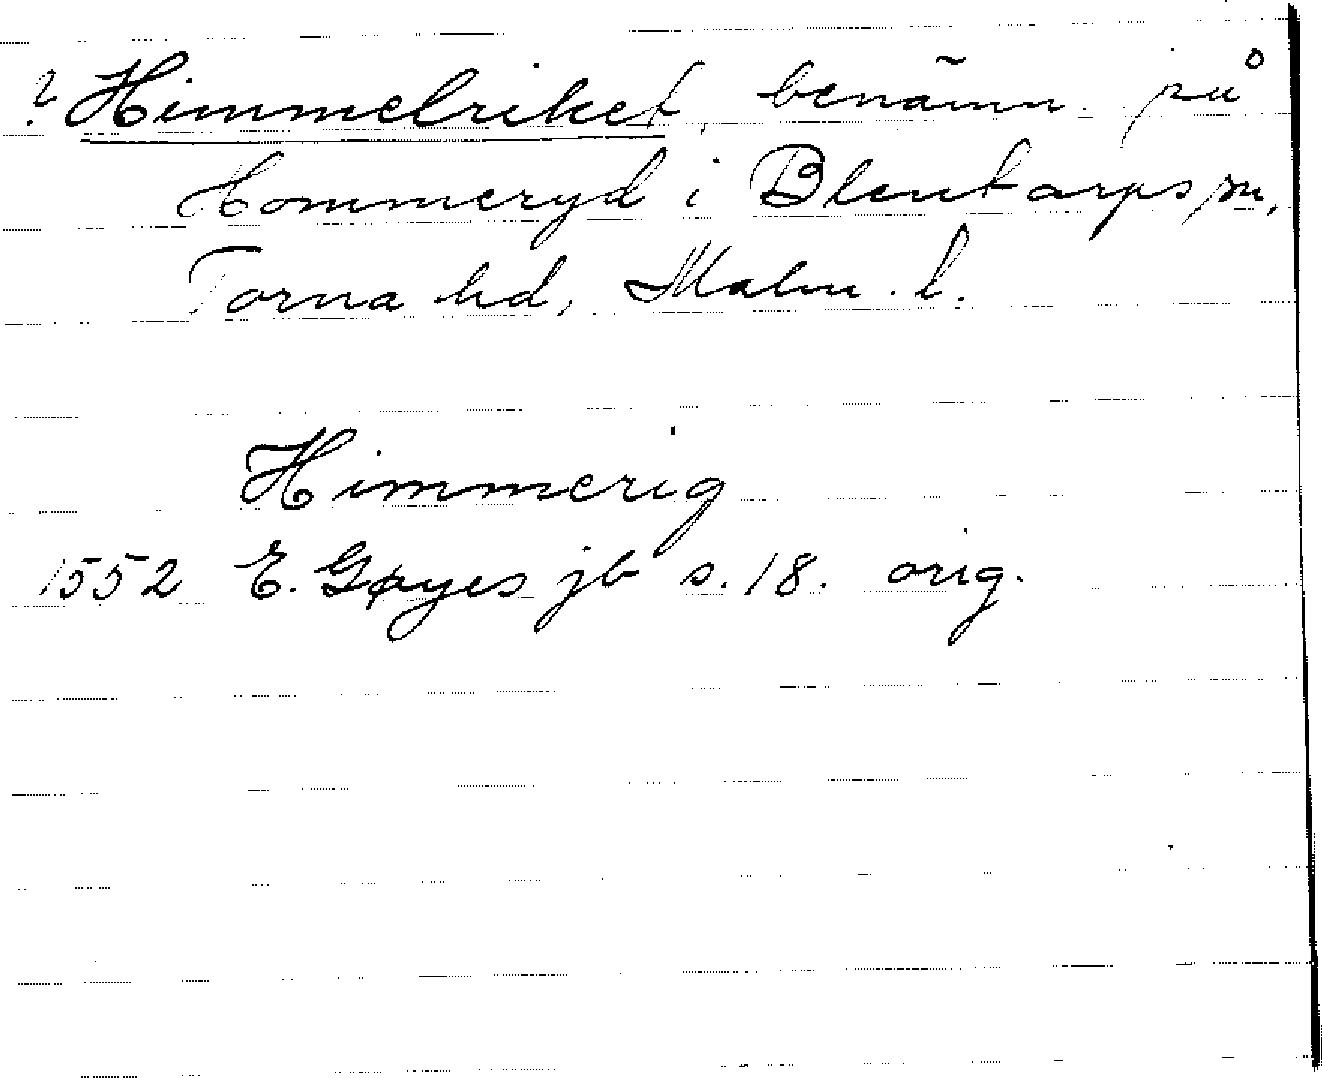 ? Himmelriket, benämn. på
Hommeryd i Blentarps sn,
Torna hd, Malm. l.
Himmerig
1552 E. Gøyes jb s. 18. orig.